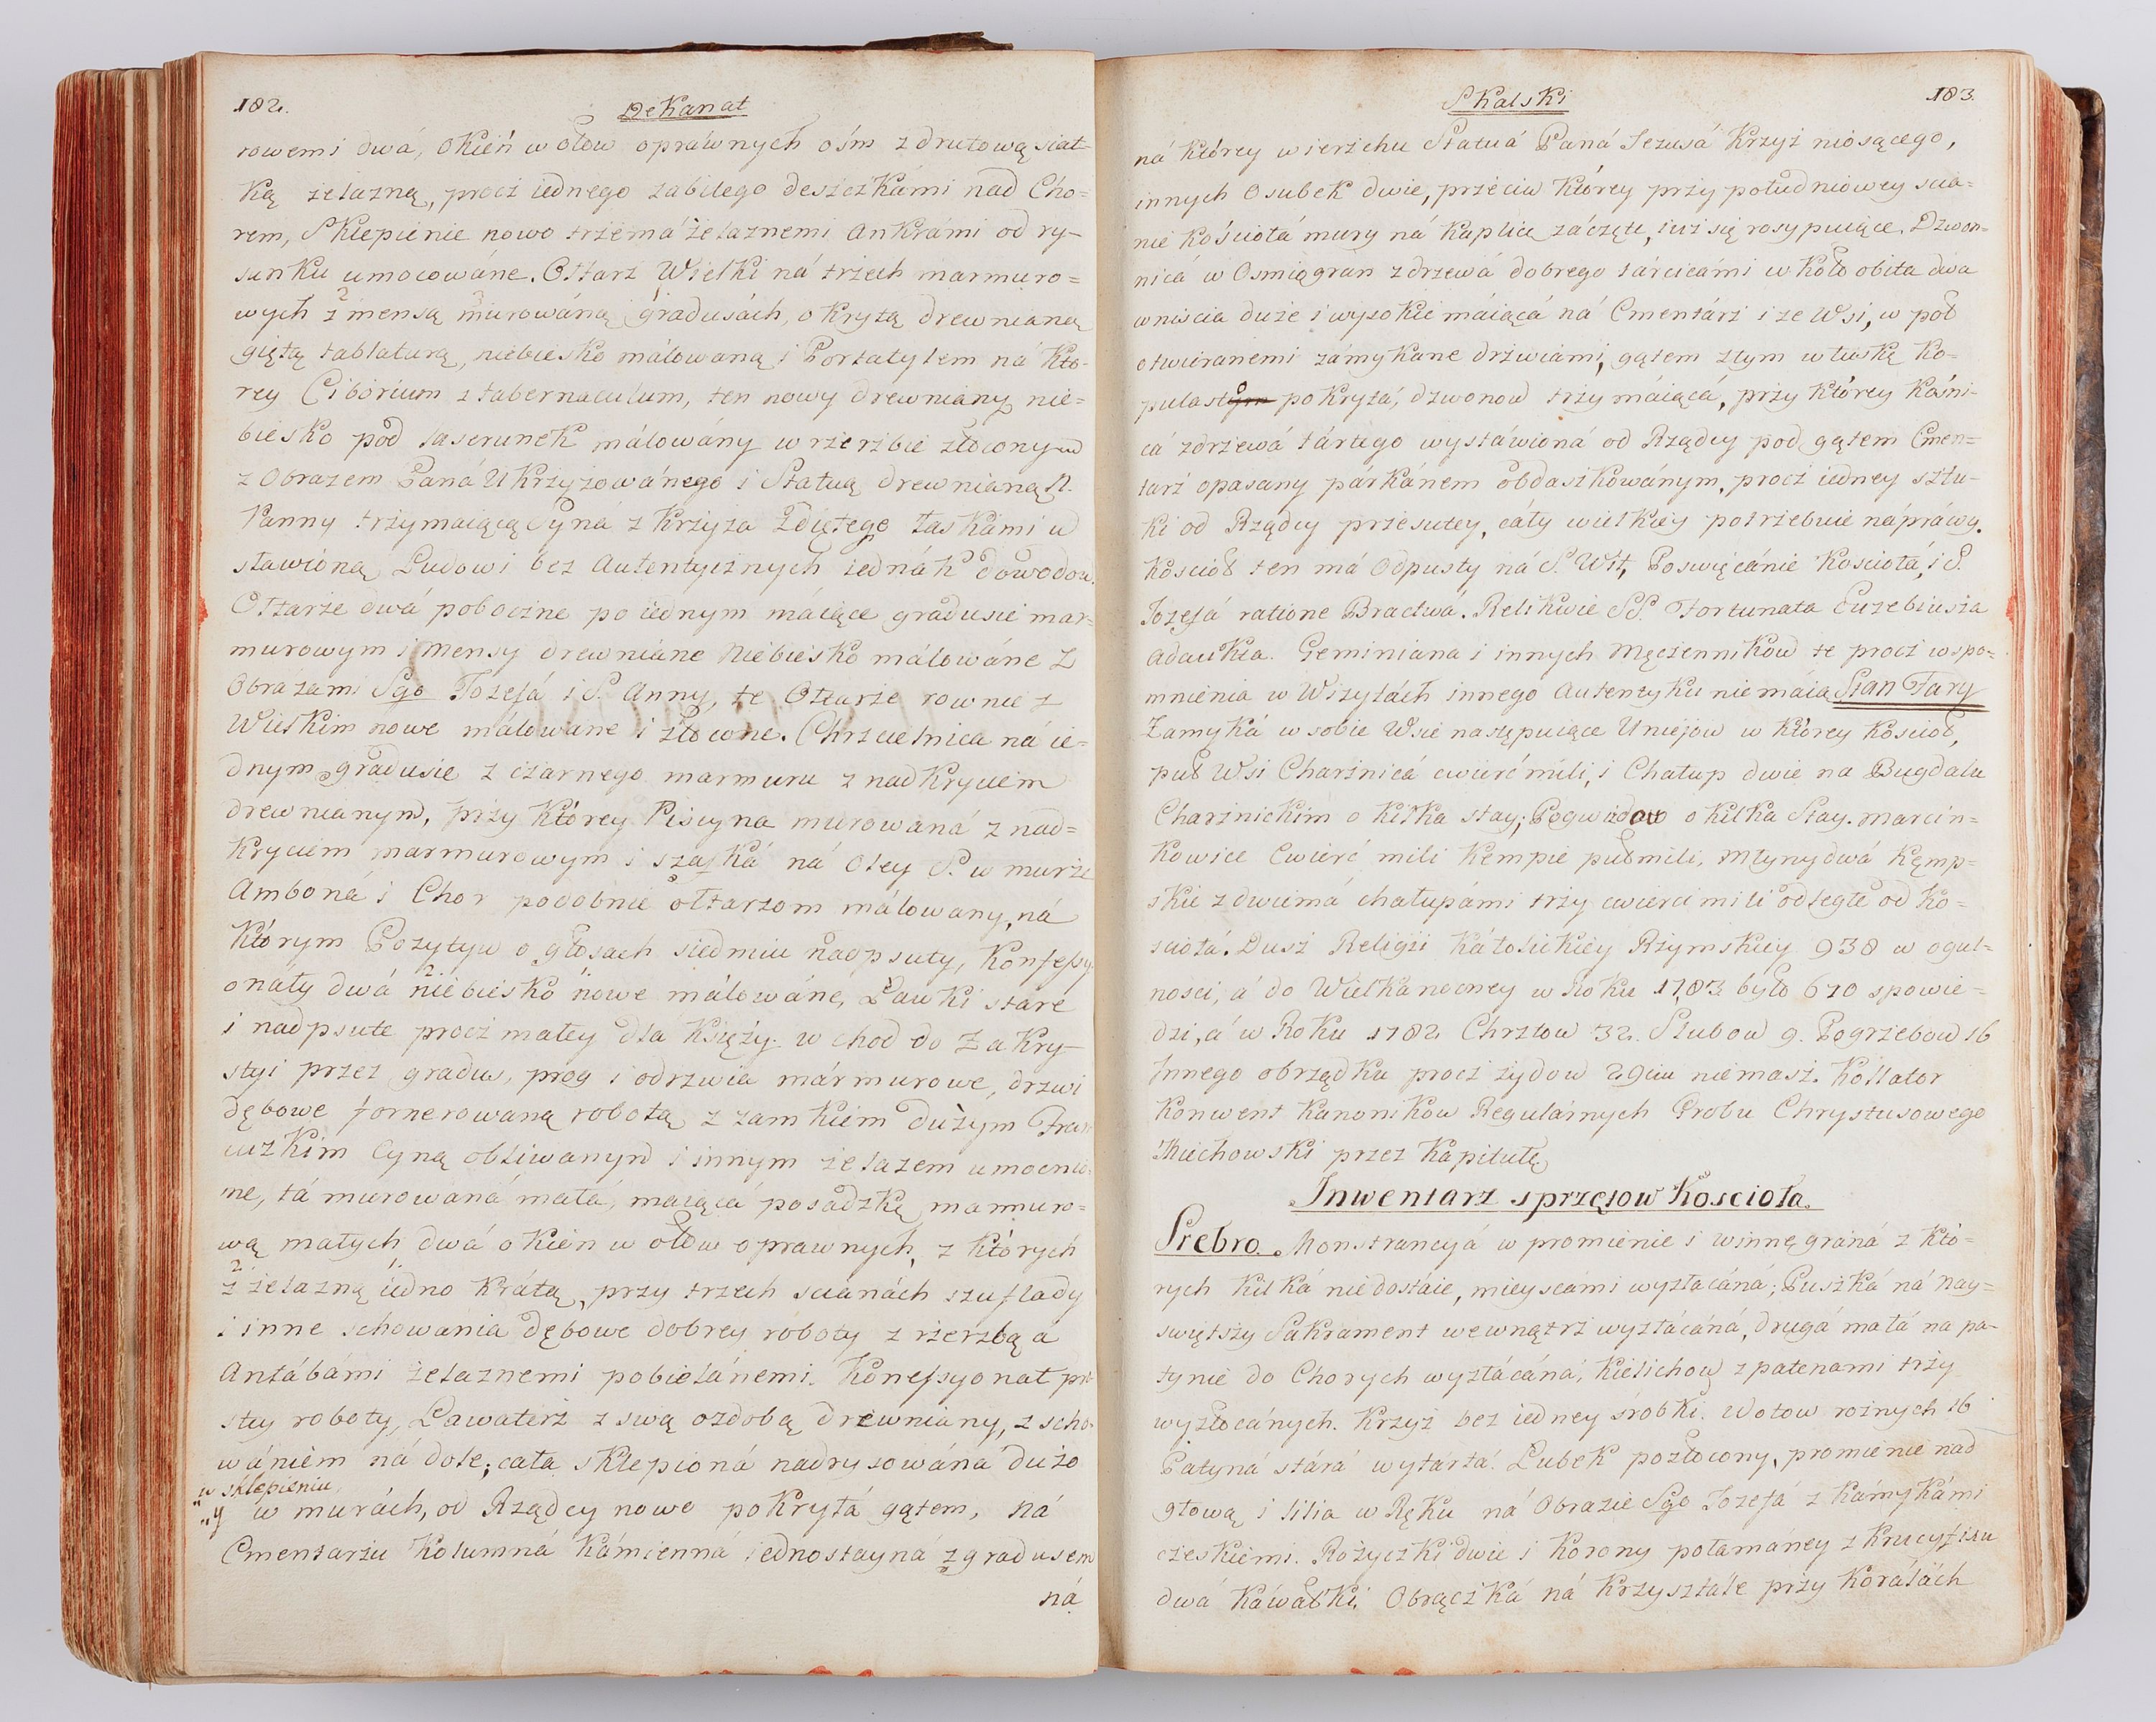 182.
Dekanat
rowemi dwá, Okień w ołow opráwnych ośm z drutową siat-
ką żelazną, procż iednego zabitego deszczkámi nad Cho=
rem, Sklepienie nowo trzemá żelaznemi Ankrámi od ry-
sunku umocowáne. Ołtarz Wielki ná trzech marmuro=
wych z mensą murowáną gradusách, okrytą drewnianą
giętą tablaturą, niebiesko málowaną i Portatylem ná kto-
rey Ciborium z tabernaculum, ten nowy drewniany nie=
biesko pod laserunek málowány w rzerzbie złoconym
z Obrazem Paná Ukrzyżowánego i Statuą drewnianą N.
Panny trzymaiącą Syná z krzyża Zdiętego łaskámi w
sławioną Ludowi bez Autentycznych iednák dowodow.
Ołtarze dwá poboczne po iednym máiące gradusie mar=
murowym i Mensy drewniáne Niebiesko málowáne Z
Obrazami Sgo Jozefá i S. Anny, te Ołtarze rownie z
Wielkim nowe málowane i złocone. Chrzcielnica ná ie=
dnym gradusie z czarnego marmuru z nadkryciem
drewnianym, przy ktorey Piscyna murowaná z nad=
kryciem marmurowym i szafká ná Oley S. w murze
Amboná i Chor podobnie ołtarzom málowany, ná
ktorym Pozytyw o głosach siedmiu nadpsuty, Konfessy
onáły dwá niebiesko nowe málowáne, Ławki stáre
i nadpsute procż małey dla Księży. w chod do Zakry-
styi przez gradus, prog i odrzwia mármurowe, drzwi
dębowe fornerowaną robotą z zamkiem dużym Fran
cuzkim Cyną obliwanym i innym żelazem umocnio
ne, tá murowaná małá, maiącá posadzkę marmuro=
wą małych dwá okien w ołow oprawnych, z ktorych
z żelazną iedno kratą, przy trzech scianách szuflady
i inne schowania dębowe dobrey roboty z rzerzbą a
Antábámi żelaznemi pobielánemi. Konfessyonał pro
stey roboty, Lawaterz z swą ozdobą drewniany, z scho
wániem ná dole; cała sklepioná nadrysowáná dużo
w sklepieniu
„y w murách, od Rządcy nowo pokrytá gątem, ná
Cmentarzu Kolumná kámienná iednostayná z gradusem
ná
Skalski
183.
ná ktorey wierzchu Statuá Paná Jezusá Krzyż niosącego,
innych Osubek dwie, przeciw ktorey przy południowey scia=
nie kościołá mury ná kaplicę záczęte, iuż się rosypuiące. Dzwon=
nicá w Osmiogran z drzewá dobrego tárcicámi w koło obita dwa
wniścia duże i wysokie máiącá ná Cmentárz i ze Wsi, w poł
otwieranemi zámykane drzwiámi, gątem złym w łuskę ko=
pulasto pokrytá, dzwonow trzy máiącá, przy ktorey kośni-
cá z drzewá tártego wystáwioná od Rządcy pod gątem Cmen=
tarz opasany párkánem obdaszkowánym, procż iedney sztu-
ki od Rządcy przesutey, cáły wielkiey potrzebuie nápráwy.
Kościoł ten má Odpusty ná S. Wit, Poswięcánie Kosciołá, i S.
Jozefá ratione Bractwá. Relikwie SS. Fortunata Euzebiusza
Adaukta. Geminiana i innych Męczennikow te procż wspo=
mnienia w Wizytách innego Autentyku niemáią Stan Fary
Zamyká w sobie Wsie następuiące Uniejow w ktorey Kościoł,
puł Wsi Charznicá cwierć mili, i Chałup dwie na Bugdalu
Charznickim o kilka stay; Pogwizdow o kilka Stay. Marcin=
kowice Cwierć mili Kempie puł mili, Młyny dwá Kęmp=
skie z dwiemá chałupámi trzy cwierci mili odległe od ko=
sciołá. Dusz Religii Kátolickiey Rzymskiey 938 w ogul=
nosci, á do Wielkánocney w Roku 1783 było 670 spowie=
dzi, á w Roku 1782 Chrztow 32. Slubow 9. Pogrzebow 16
Innego obrządku procż żydow 29ciu niemasz. Kollator
Konwent Kanonikow Regularnych Grobu Chrystusowego
Miechowski przez Kapitułę
Inwentarz sprzętow Kosciola.
Srebro. Monstrancyá w promienie i winnegráná z kto=
rych kilká niedostaie, mieyscámi wyzłácáná; Puszká ná nay=
swiętszy Sakrament wewnątrz wyzłácáná, drugá małá na pa=
tynie do Chorych wyzłácáná, Kielichow z patenami trzy
wyzłocánych. Krzyż bez iedney śrobki. Wotow rożnych 16
Patyná stárá wytártá. Lubek pozłocony, promienie nad
głową i lilia w Ręku ná Obrazie Sgo Jozefá z kámykámi
czeskiemi. Rożyczki dwie i Korony połamáney z Krucyfixu
dwá káwałki, Obrączká ná Krzysztale przy korálách